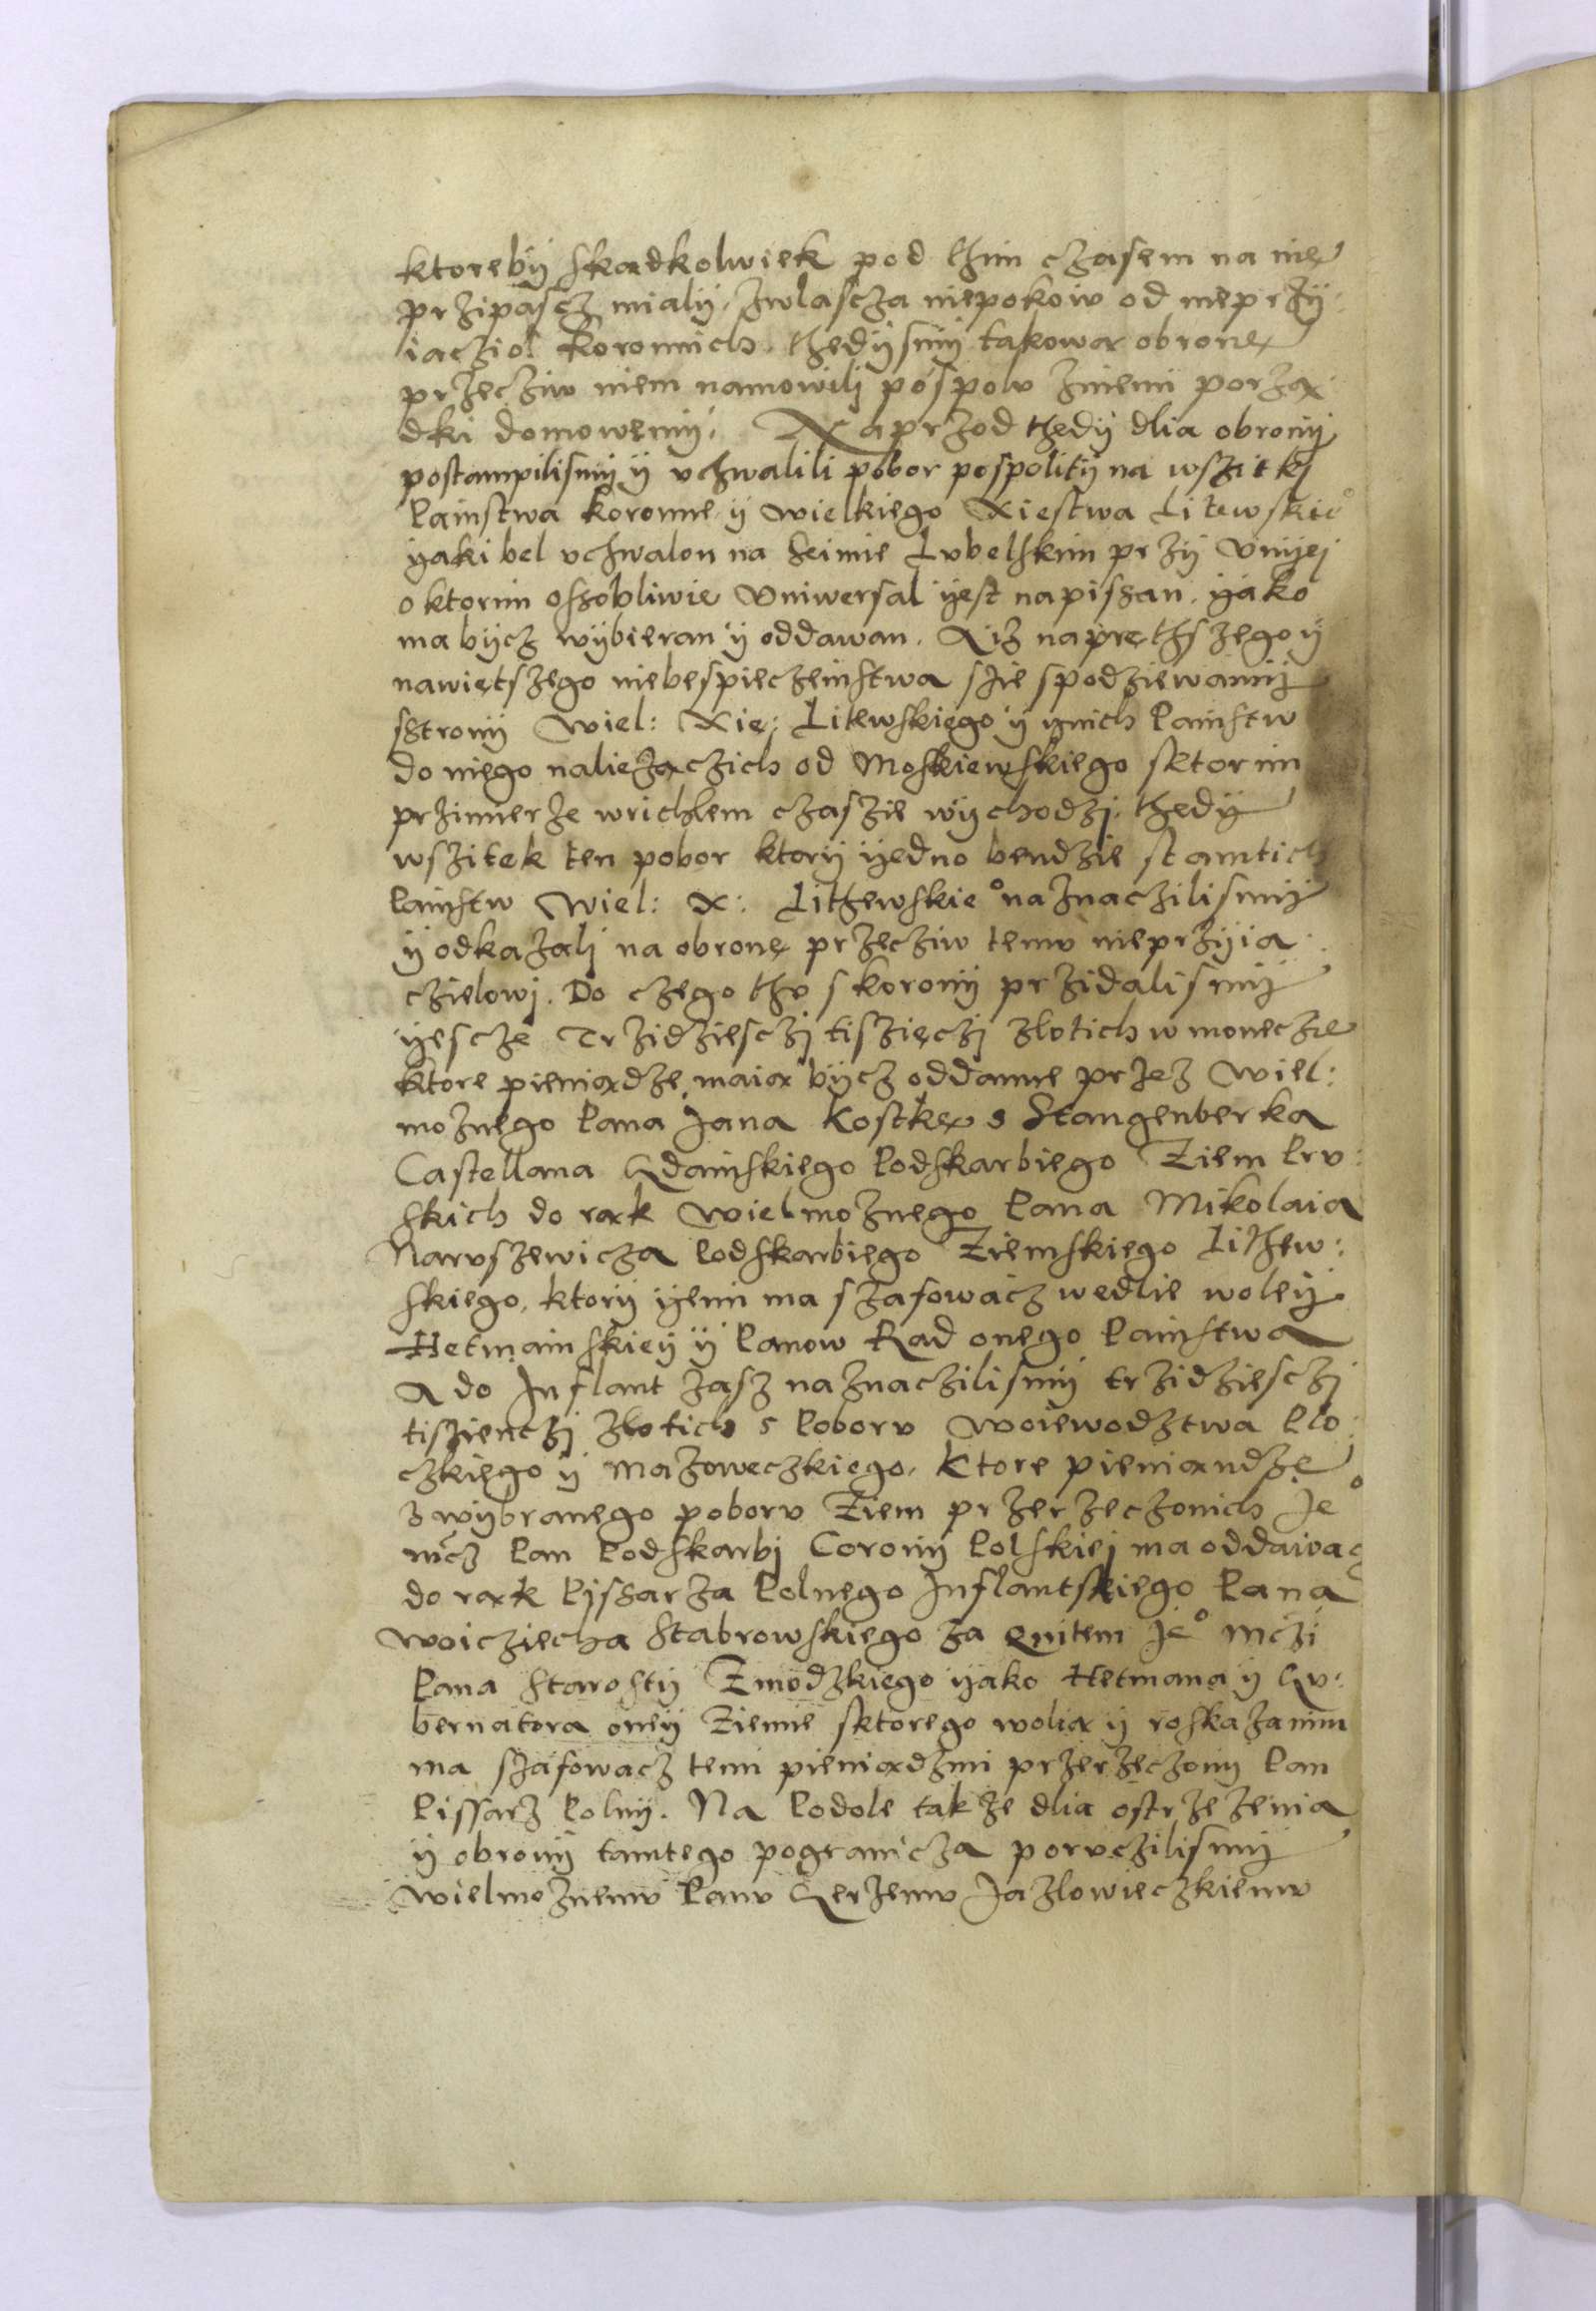 ktorebÿ skądkolwiek pod thim czasem na nię
przipascz mialÿ, zwlascza niepokoiw od nieprzÿ:
iacziol Koronnich. thedÿsmÿ takową obronę
przecziw niem namowili pospolu zniemi porzą:
dki domowemÿ. Naprzod thedÿ dlia obronÿ
postampilismÿ ÿ uchwalili pobor pospolitÿ na wszitkj
Painstwa koronne ÿ wielkiego Xiestwa Litewskieº
ÿaki bel uchwalon na Seimie Lubelskim przÿ Vnijej
o ktorim ossobliwie Vniwersal ÿest napissan. ÿako
ma bÿcz wÿbieran ÿ oddawan. A iz naprethszego ÿ
nawiętszego niebespieczeinstwa szie spodziewamÿ
sstronÿ Wiel: Xię: Litewskiego ÿ ÿnich Painstw
do niego należączich od Moskiewskiego sktorim
przimierze wrichlem czaszie wÿchodzj. thedÿ
wszitek ten pobor ktorÿ ÿedno bendzie stamtich
Painstw Wiel: X: Lithewskieº naznaczilismÿ
ÿ odkazalj na obronę przecziw temu nieprzÿia:
czielowj. Do czego thv s koronÿ przidalismÿ
ÿescze Trzidziesczj tisziączj zlotich w monecze
ktore pieniądze maią bÿcz oddanne przez Wiel:
moznego Pana Jana Kostkę s Stangenberka
Castellana Gdainskiego Podskarbiego Ziem Pru:
skich do rąk Wielmoznego Pana Mikolaia
Naruszewicza Podskarbiego Ziemskiego Lithew:
skiego, ktorÿ ÿemi ma szafowacz wedlie woleÿ
Hetmainskieÿ ÿ Panow Rad onego Painstwa
A do Inflant zasz naznaczilismÿ trzidziesczj
tiszienczj zlotich s Poboru Woiewodztwa Plo:
czkiego ÿ Mazoweczkiego. Ktore pieniąndze
z wÿbranego poboru Ziem przerzeczonich Jeº
mcz Pan Podskarbj Coronÿ Polskiej ma oddawacz
do rąk Pissarza Polnego Inflantskiego Pana
Woicziecha Stabrowskiego za Quitem Jeº mczi
Pana Starostÿ Zmodzkiego ÿako Hetmana ÿ Gu:
bernatora oneÿ Ziemie sktorego wolią ÿ roskazanim
ma szafowacz temi pieniądzmi przerzeczonÿ Pan
Pissarz Polnÿ. Na Podole takze dlia ostrzezenia
ÿ obronÿ tamtego pogranicza poruczilismÿ
Wielmoznemu Panu Gerzemu Jazlowieczkiemu